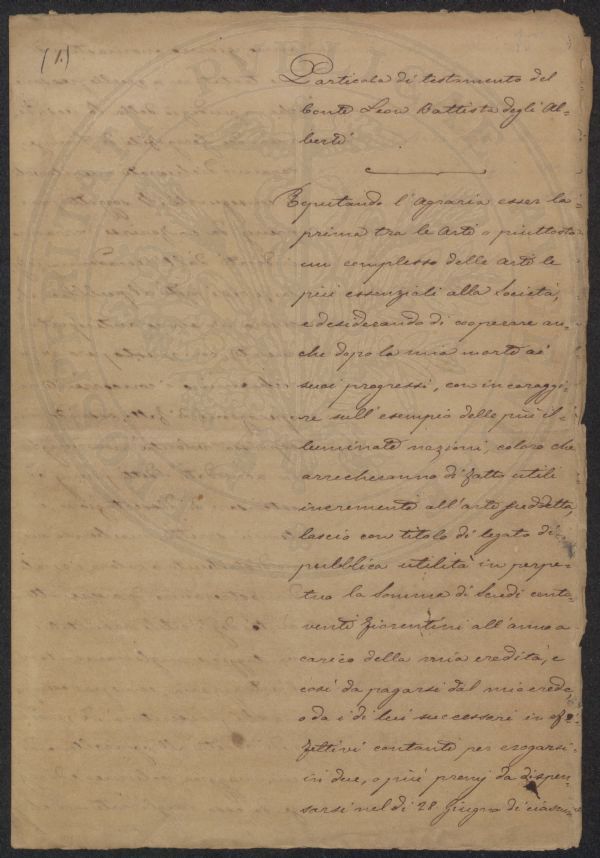 (1.)
Particola di testamento del
Conte Leon Battista degli Al-
berti
Reputando l'Agraria esser la
prima tra le Arti o piuttosto
un complesso delle Arti le
più essenziali alla Società,
e desiderando di cooperare an-
che dopo la mia morte ai
suoi progressi, con incoraggi-
re sull'esempio delle più il-
luminate nazioni, coloro che
arrecheranno di fatto utili
incrementi all'arte suddetta
lascio con titolo di legato di
pubblica utilità in perpe-
tuo la somma di Scudi cento-
venti fiorentini all'anno a
carico della mia eredità, e
così da pagarsi dal mio erede,
o da i di lui successori in ef-
fettivi contanti per erogarsi
in due, o più premj da dispen-
sarsi nel dì 28 Giugno di ciascun